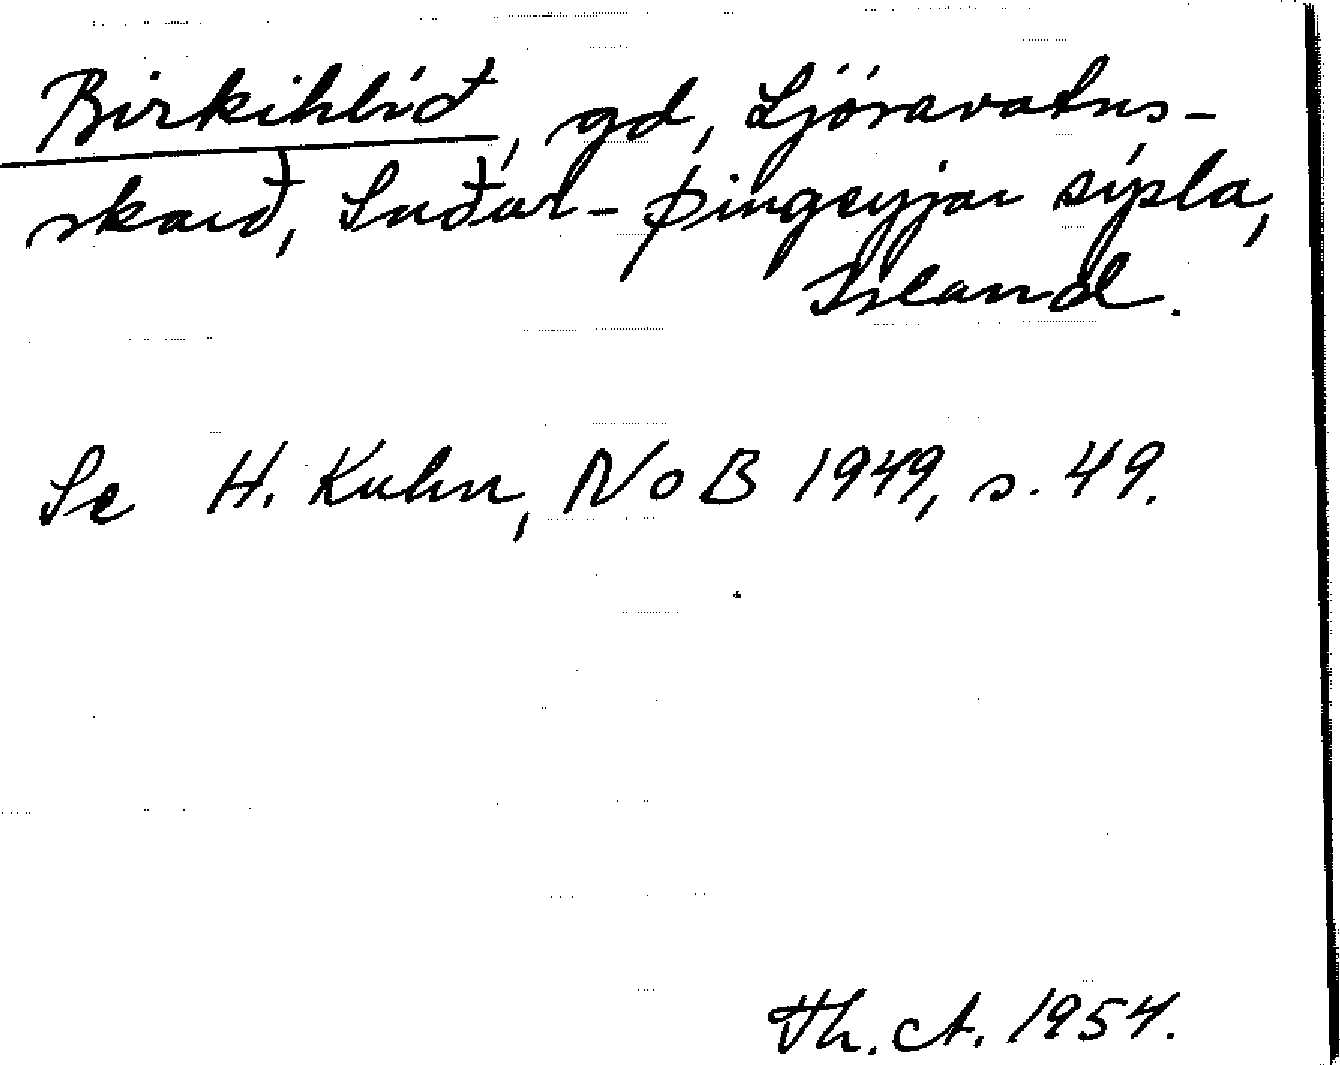 Birkihlíð, gd, Ljósavatns-
skarð, Suður-Þingeyjar sýsla,
Island.
Se H. Kuhn, NoB 1949, s. 49.
Th. A. 1954.